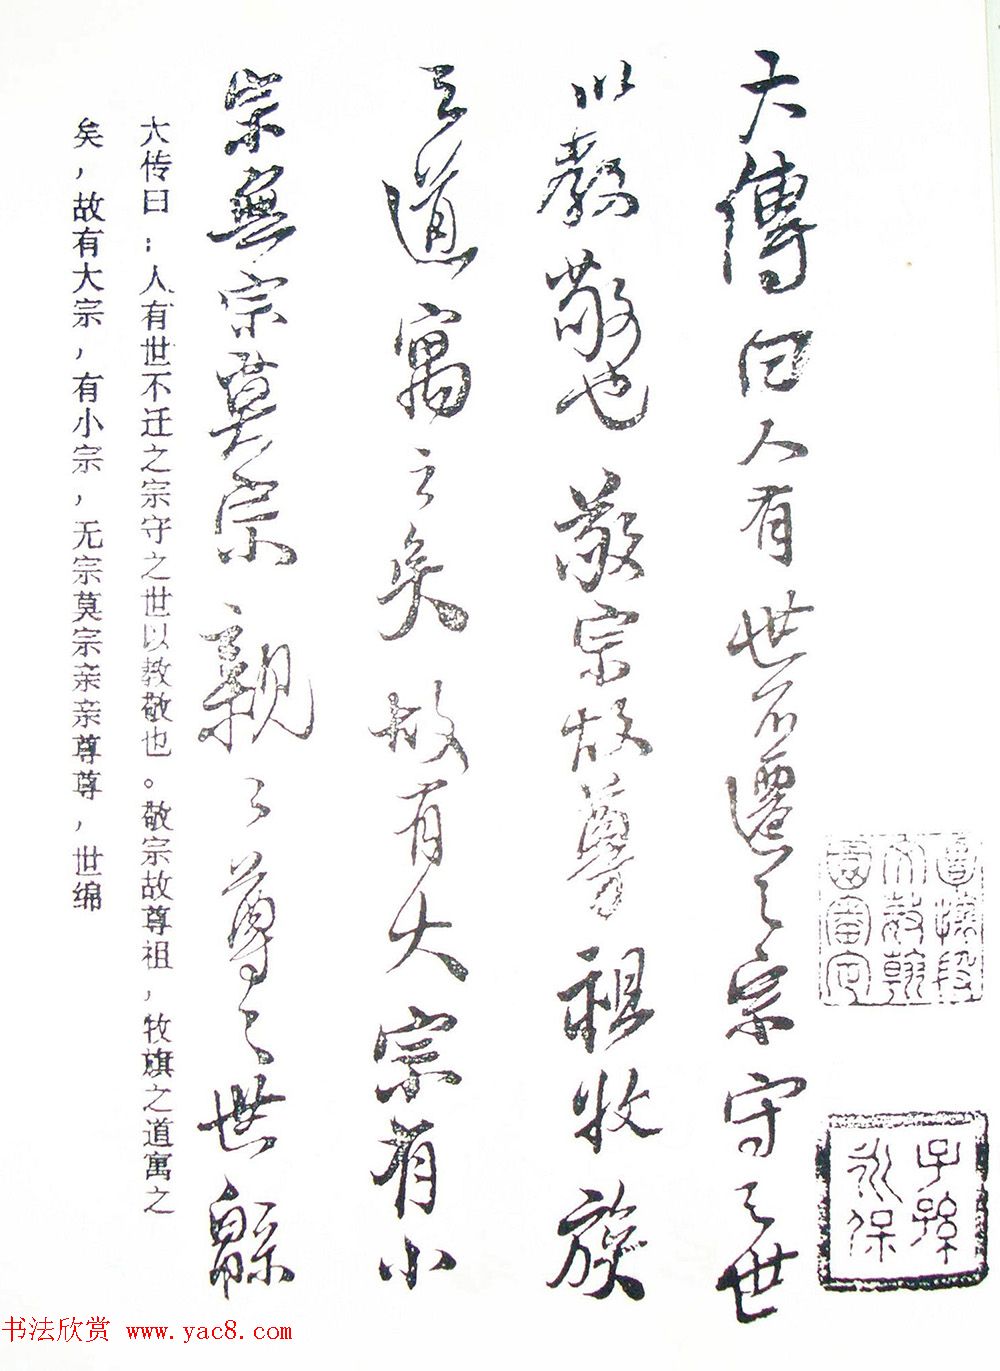 大傳曰人有世不遷之宗守之世
以教敬也敬宗故尊祖牧族
之道寓之矣故有大宗有小
宗無宗莫宗親々尊々世緜
子孫
永保
大传曰：人有世不迁之宗守之世以教敬也。敬宗故尊祖，牧旗之道寓之
矣，故有大宗，有小宗，无宗莫宗亲亲尊尊，世绵
书法欣赏 www.yac8.com